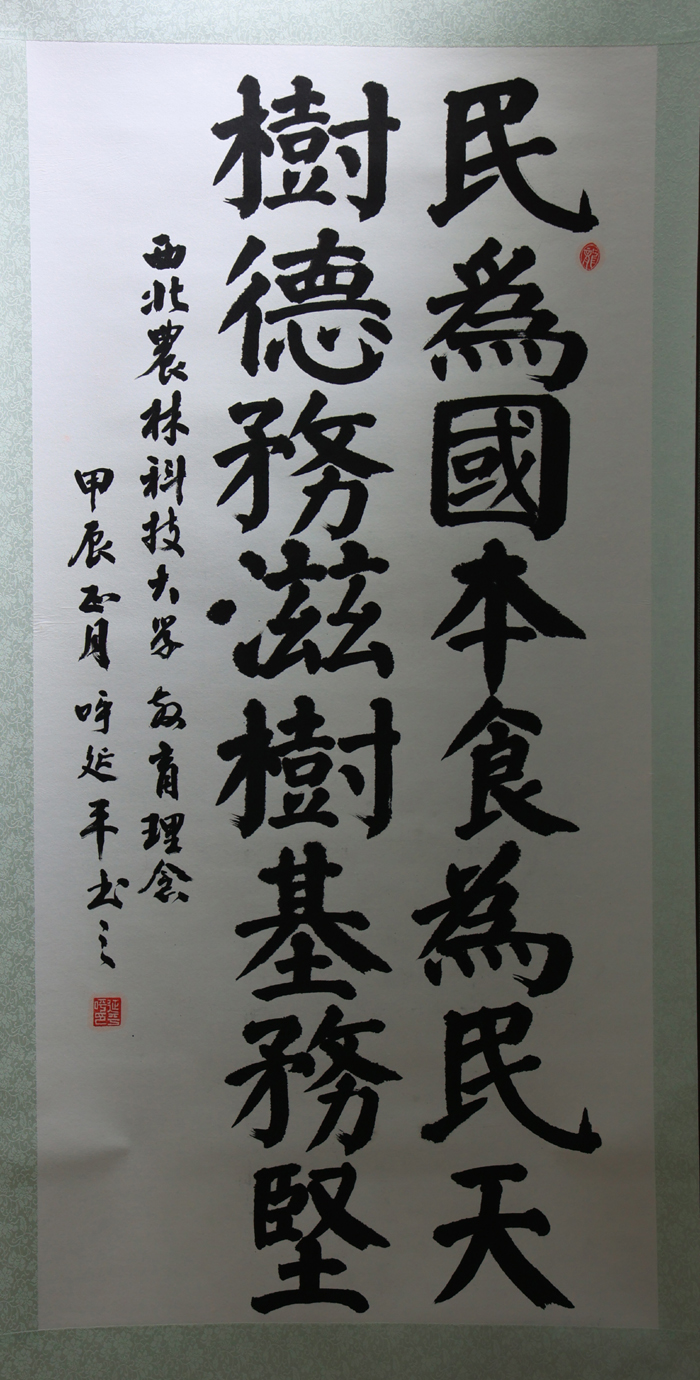 民為國本食為民天
樹德務滋樹基務堅
西北農林科技大学教育理念
甲辰正月呼延平书之